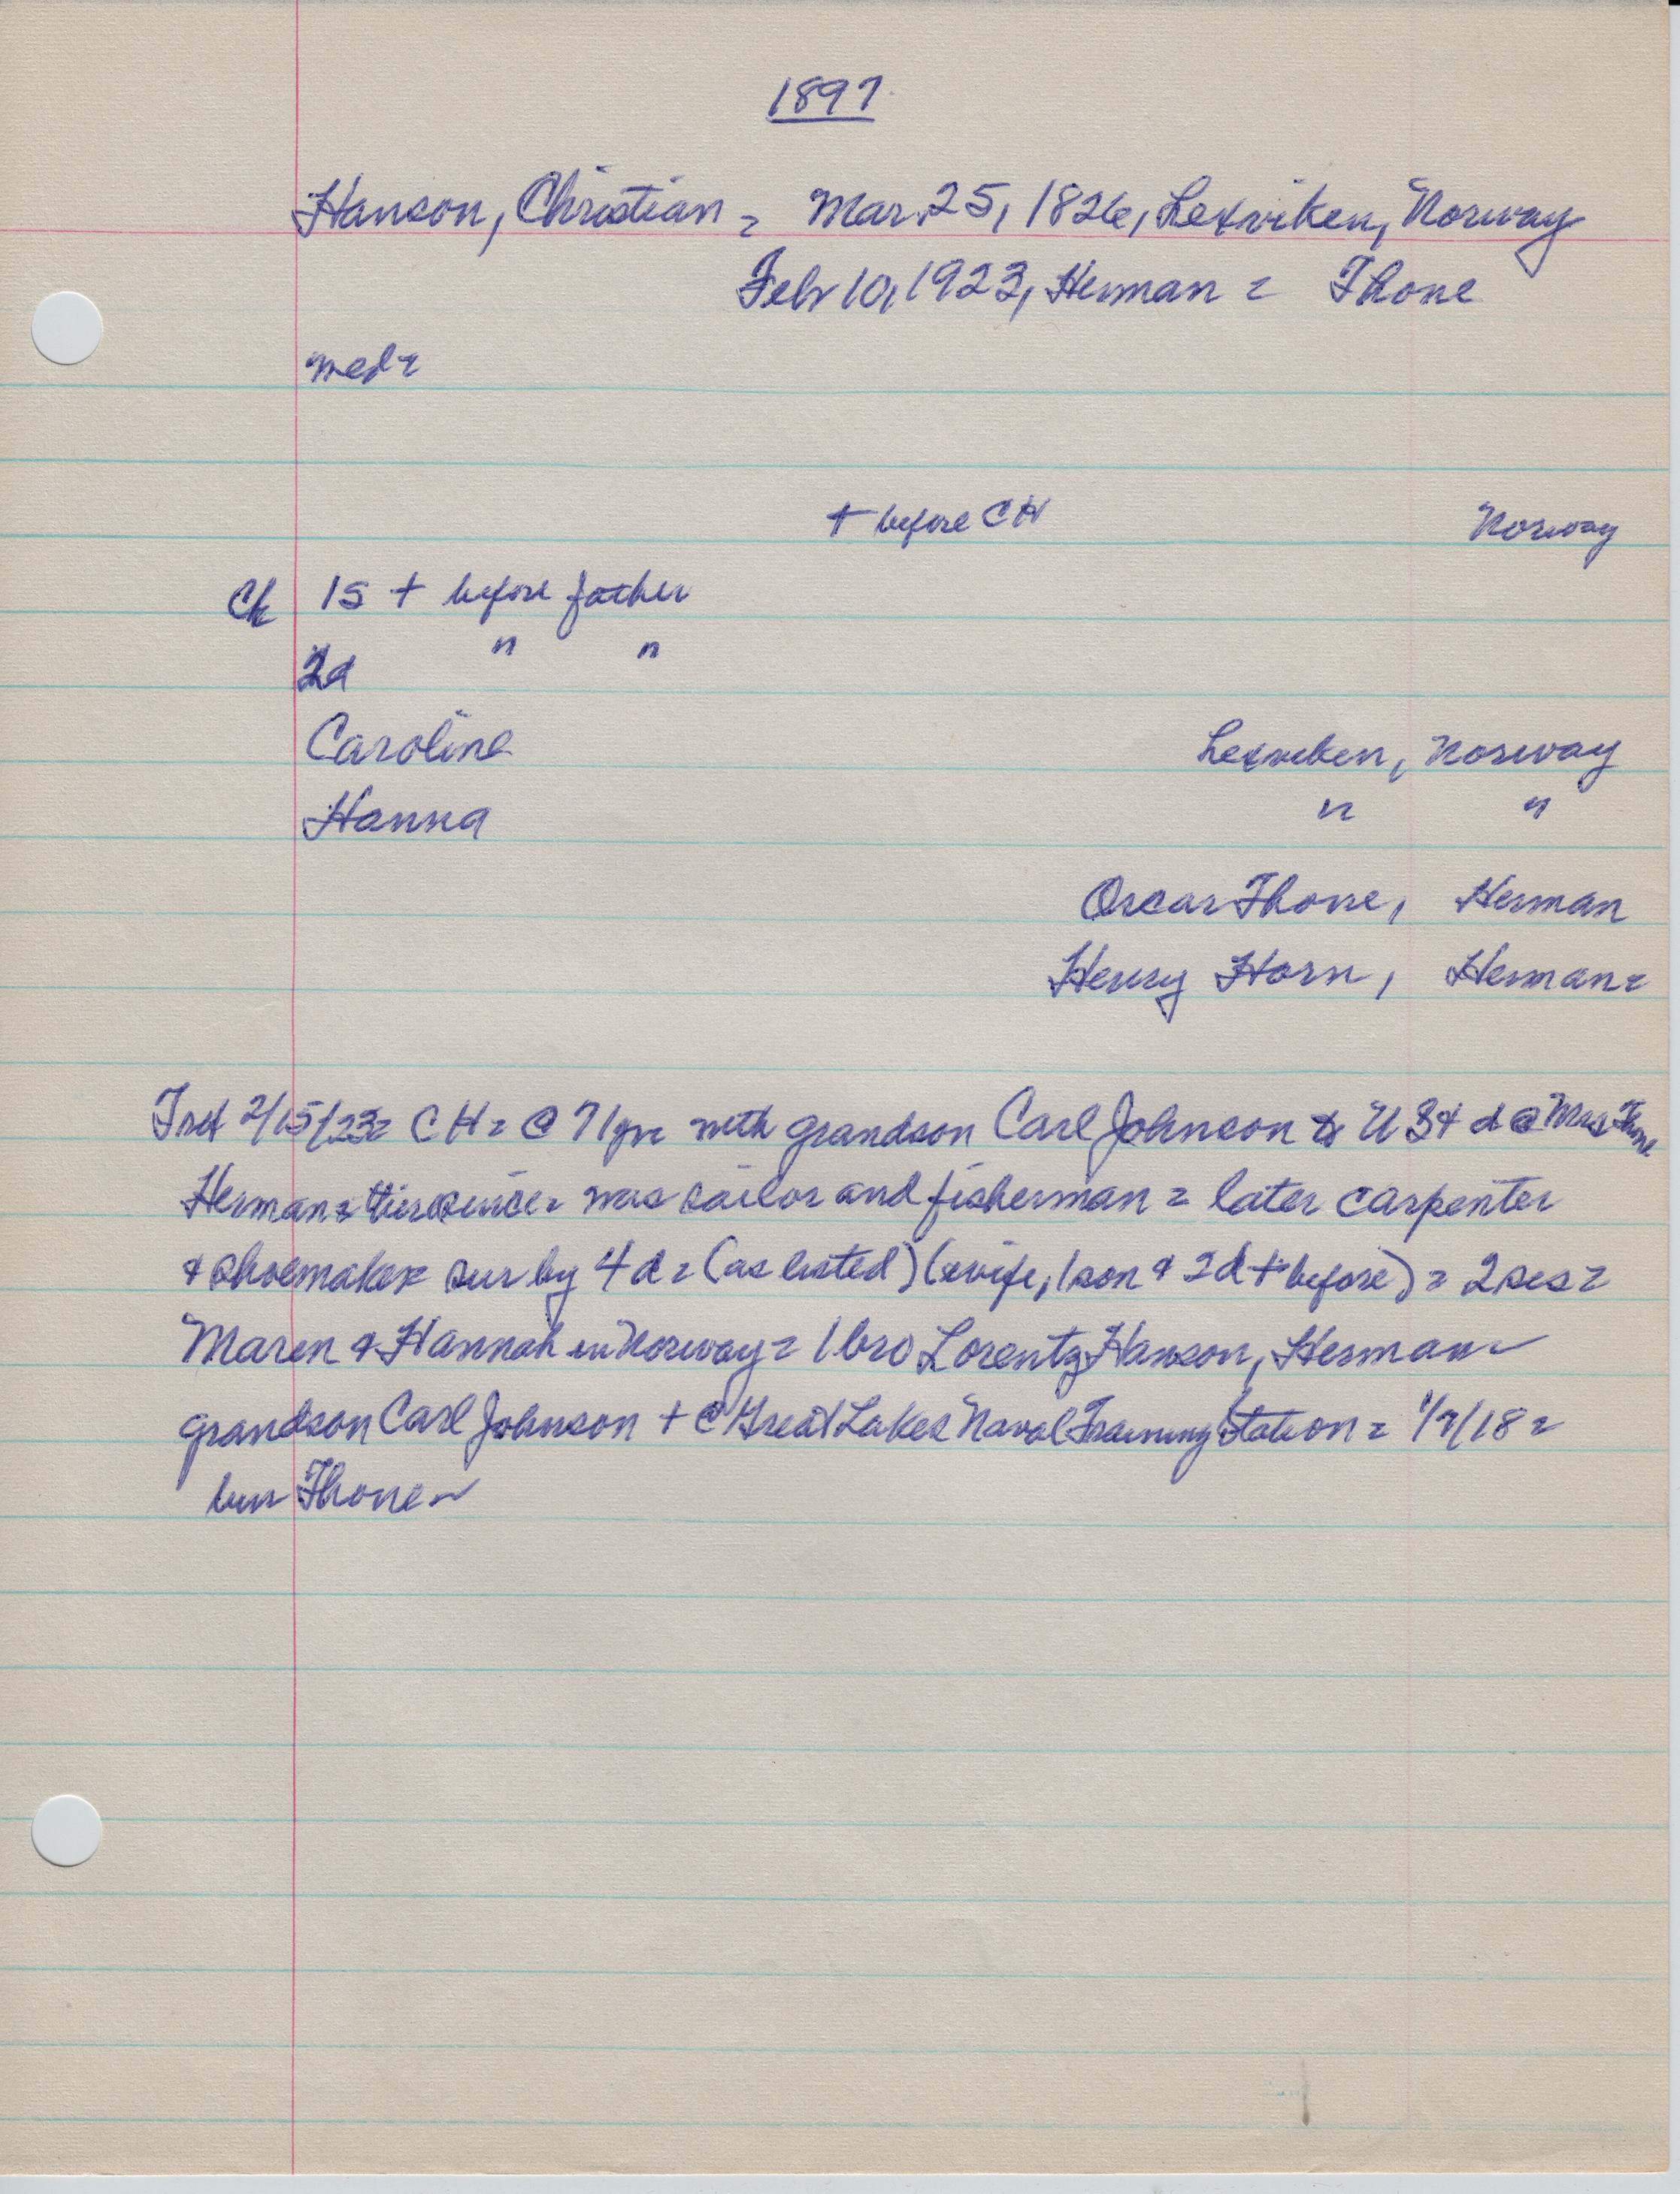 1897
Hanson, Christian = Mar. 25, 1826, Lexviken, Norway
Feb 10, 1923, Herman = Thone
med =
+ before CH Norway
Ch 1S + before father
2d " "
Caroline Lexviken, Norway
Hanna " "
Oscar Thone, Herman
Henry Horn, Herman =
2/15/23 = CH = @ 71 yr = with grandson Carl Johnson to US + d @ Mrs Thone
Herman = since = was sailor and fisherman = later carpenter
& shoemaker = sur by 4 d = (as listed) (wife, 1 son & 2d + before) = 2 sis =
Maren & Hannah in Norway = 1 bro Lorentz Hanson, Herman =
grandson Carl Johnson + @ Great Lakes Naval Training Station = 1/7/18 =
bur Thone =